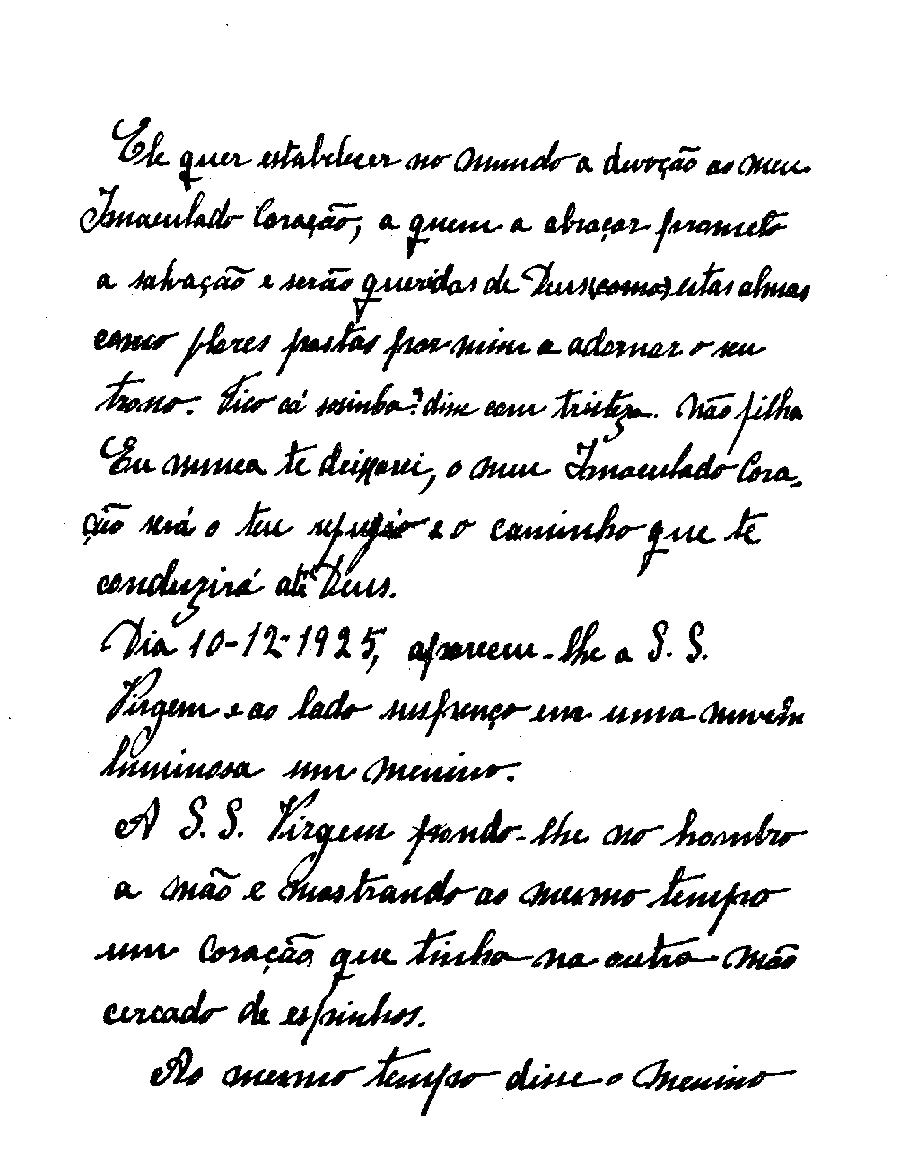 Ele quer establecer no mundo a devoção ao meu
Imaculado Coração, a quem a abraçar prometo
a salvação e serão queridas de Deus (como) estas almas
como flores postas por mim a adornar o seu
trono. Fico cá sosinha? disse com tristeza. Não filha
Eu nunca te deixarei, o meu Imaculado Cora-
ção será o teu refugio e o caminho que te
conduzirá até Deus.
Dia 10-12-1925, apareceu-lhe a S. S.
Virgem e ao lado suspenço em uma nuvem
luminosa um menino.
A S. S. Virgem pondo-lhe no hombro
a mão e mostrando ao mesmo tempo
um Coração que tinha na outra mão
cercado de espinhos.
Ao mesmo tempo disse o Menino